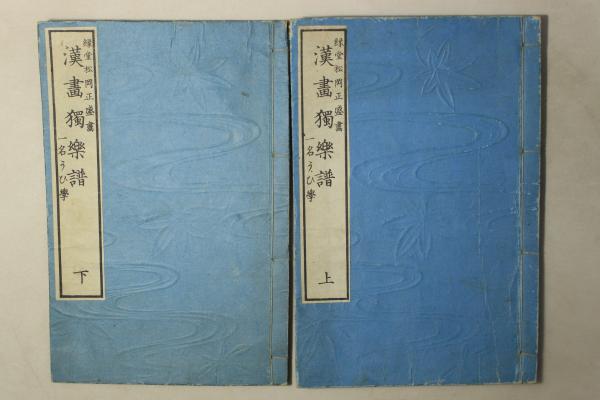 緑堂松岡正盛畫
漢畫獨樂譜
一名うひ學
上
緑堂松岡正盛畫
漢畫獨樂譜
一名うひ學
下